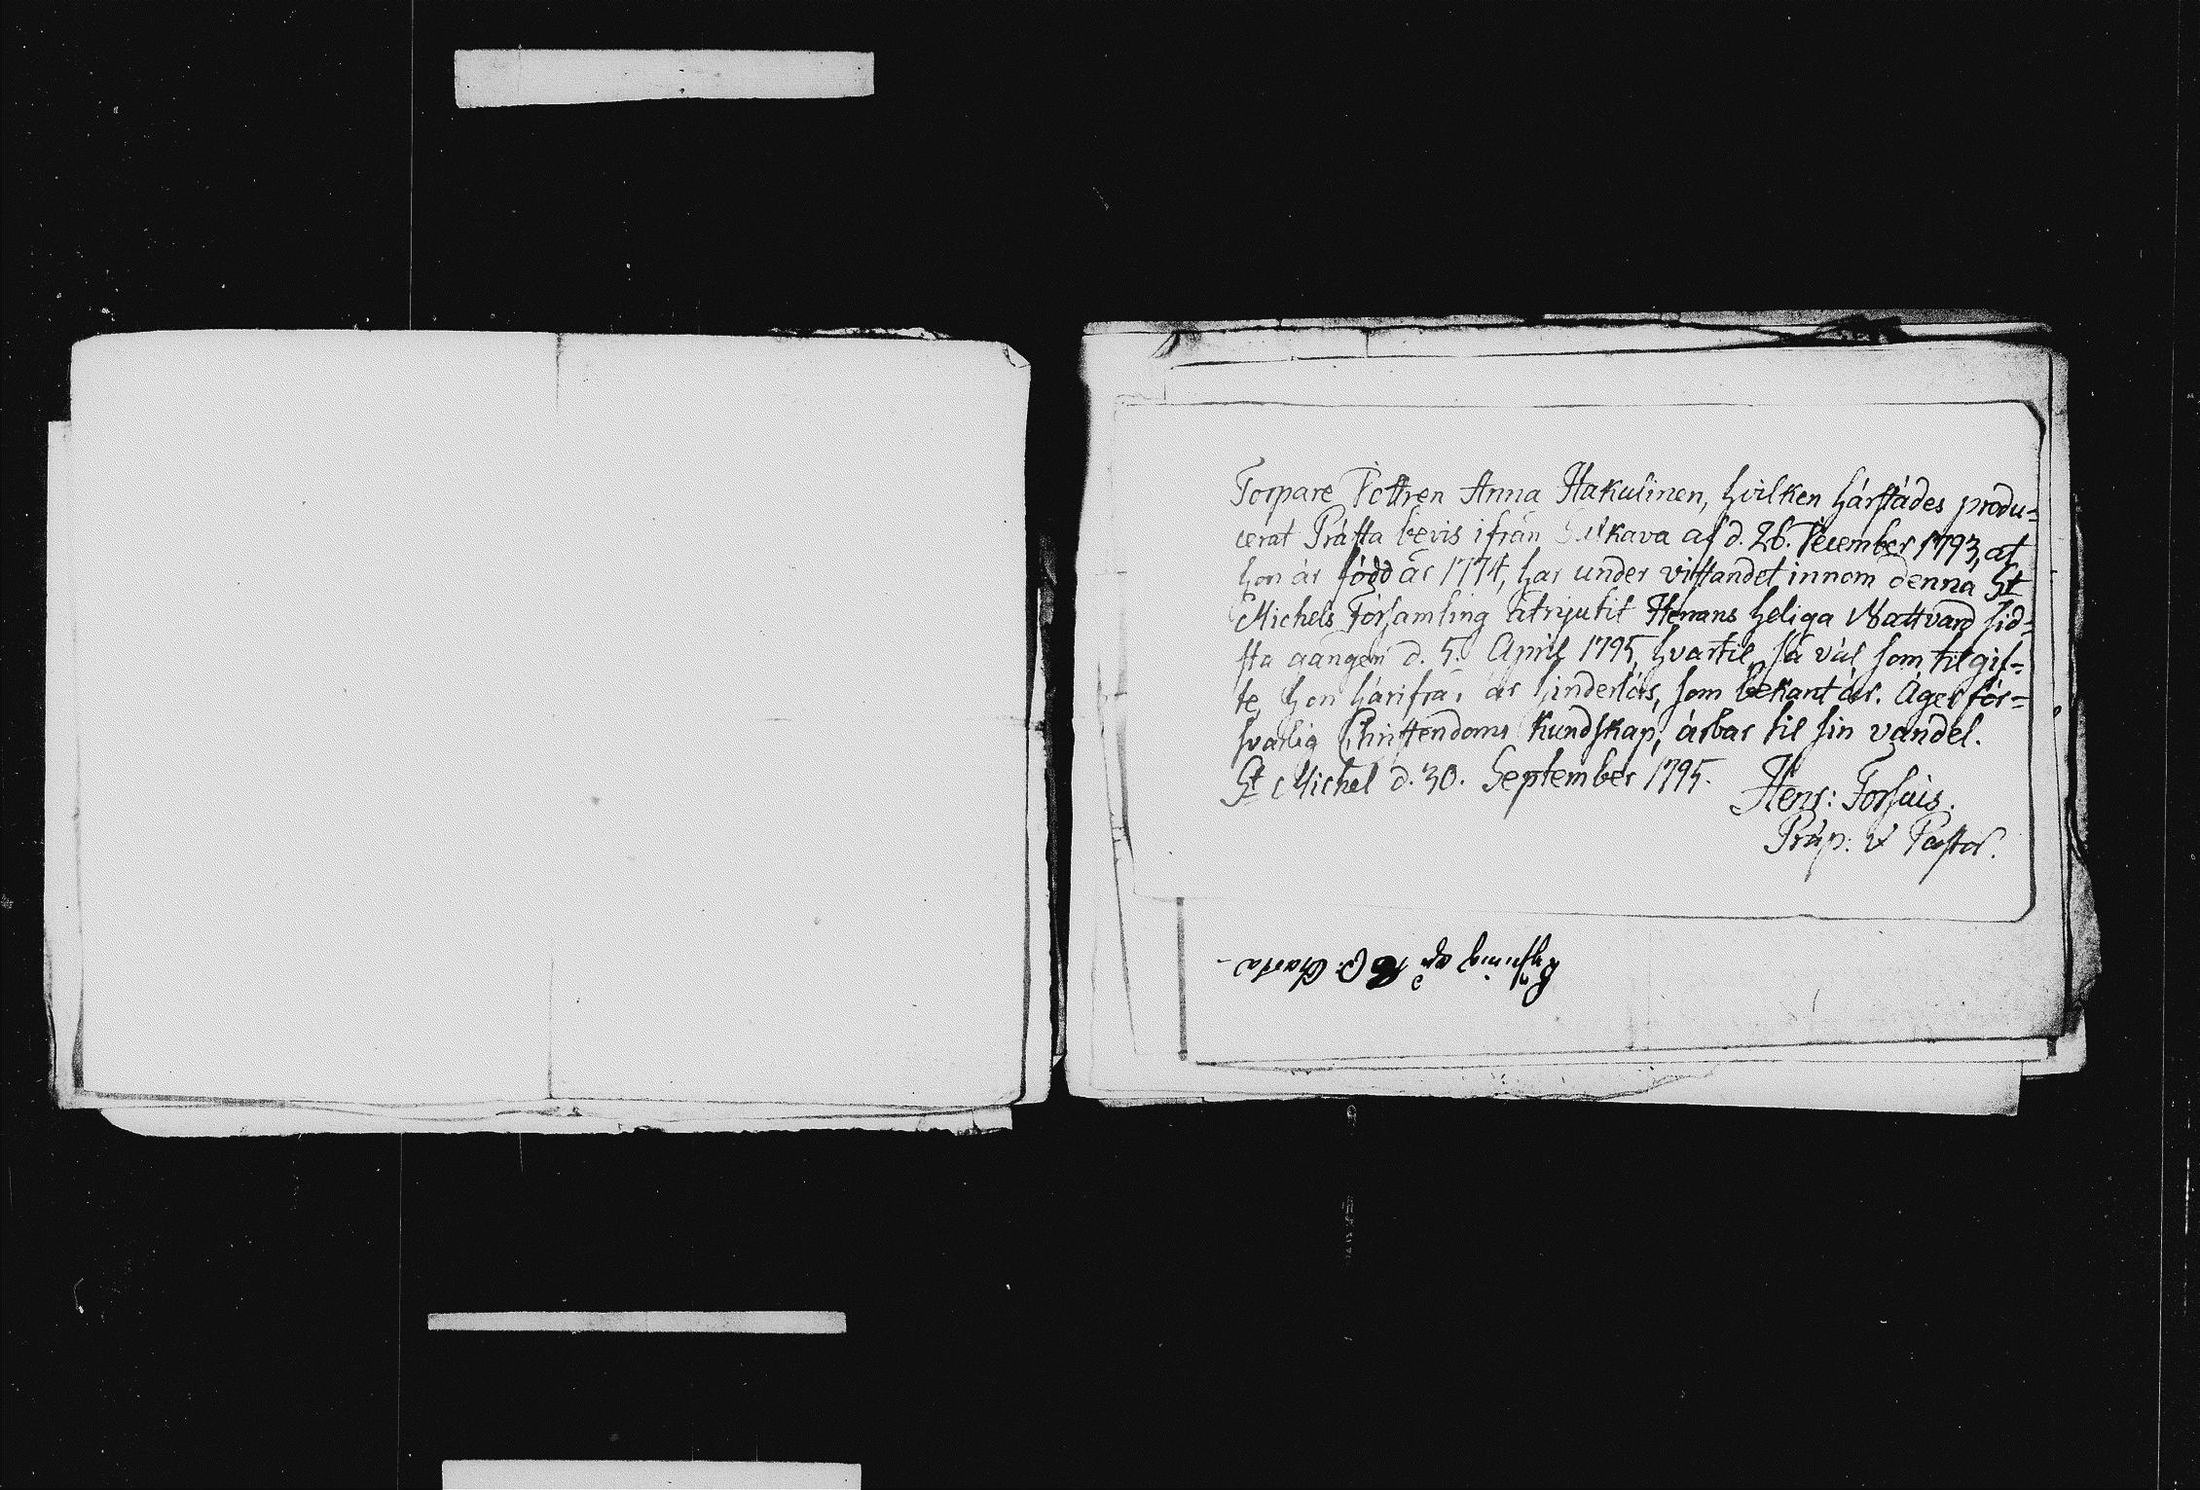 Torpare Dottren Anna Hakulinen, hvilken härstädes produ-
cerat Prästa bevis ifrån Sulkava af d. 26. December 1793, at
hon är född år 1774, har under vistandet innom denna St
Michels Församling åtnjutit Herrans heliga Nattvard sid-
sta gången d. 5. April 1795, hvartil, så väl som til gif-
te, hon härifrån är hinderlös, som bekant är. Äger för-
svarlig Christendoms kundskap, ärbar til sin vandel.
St Michel d. 30. September 1795.
Henr: Forsius.
Präp: & Pastor.
Lysning